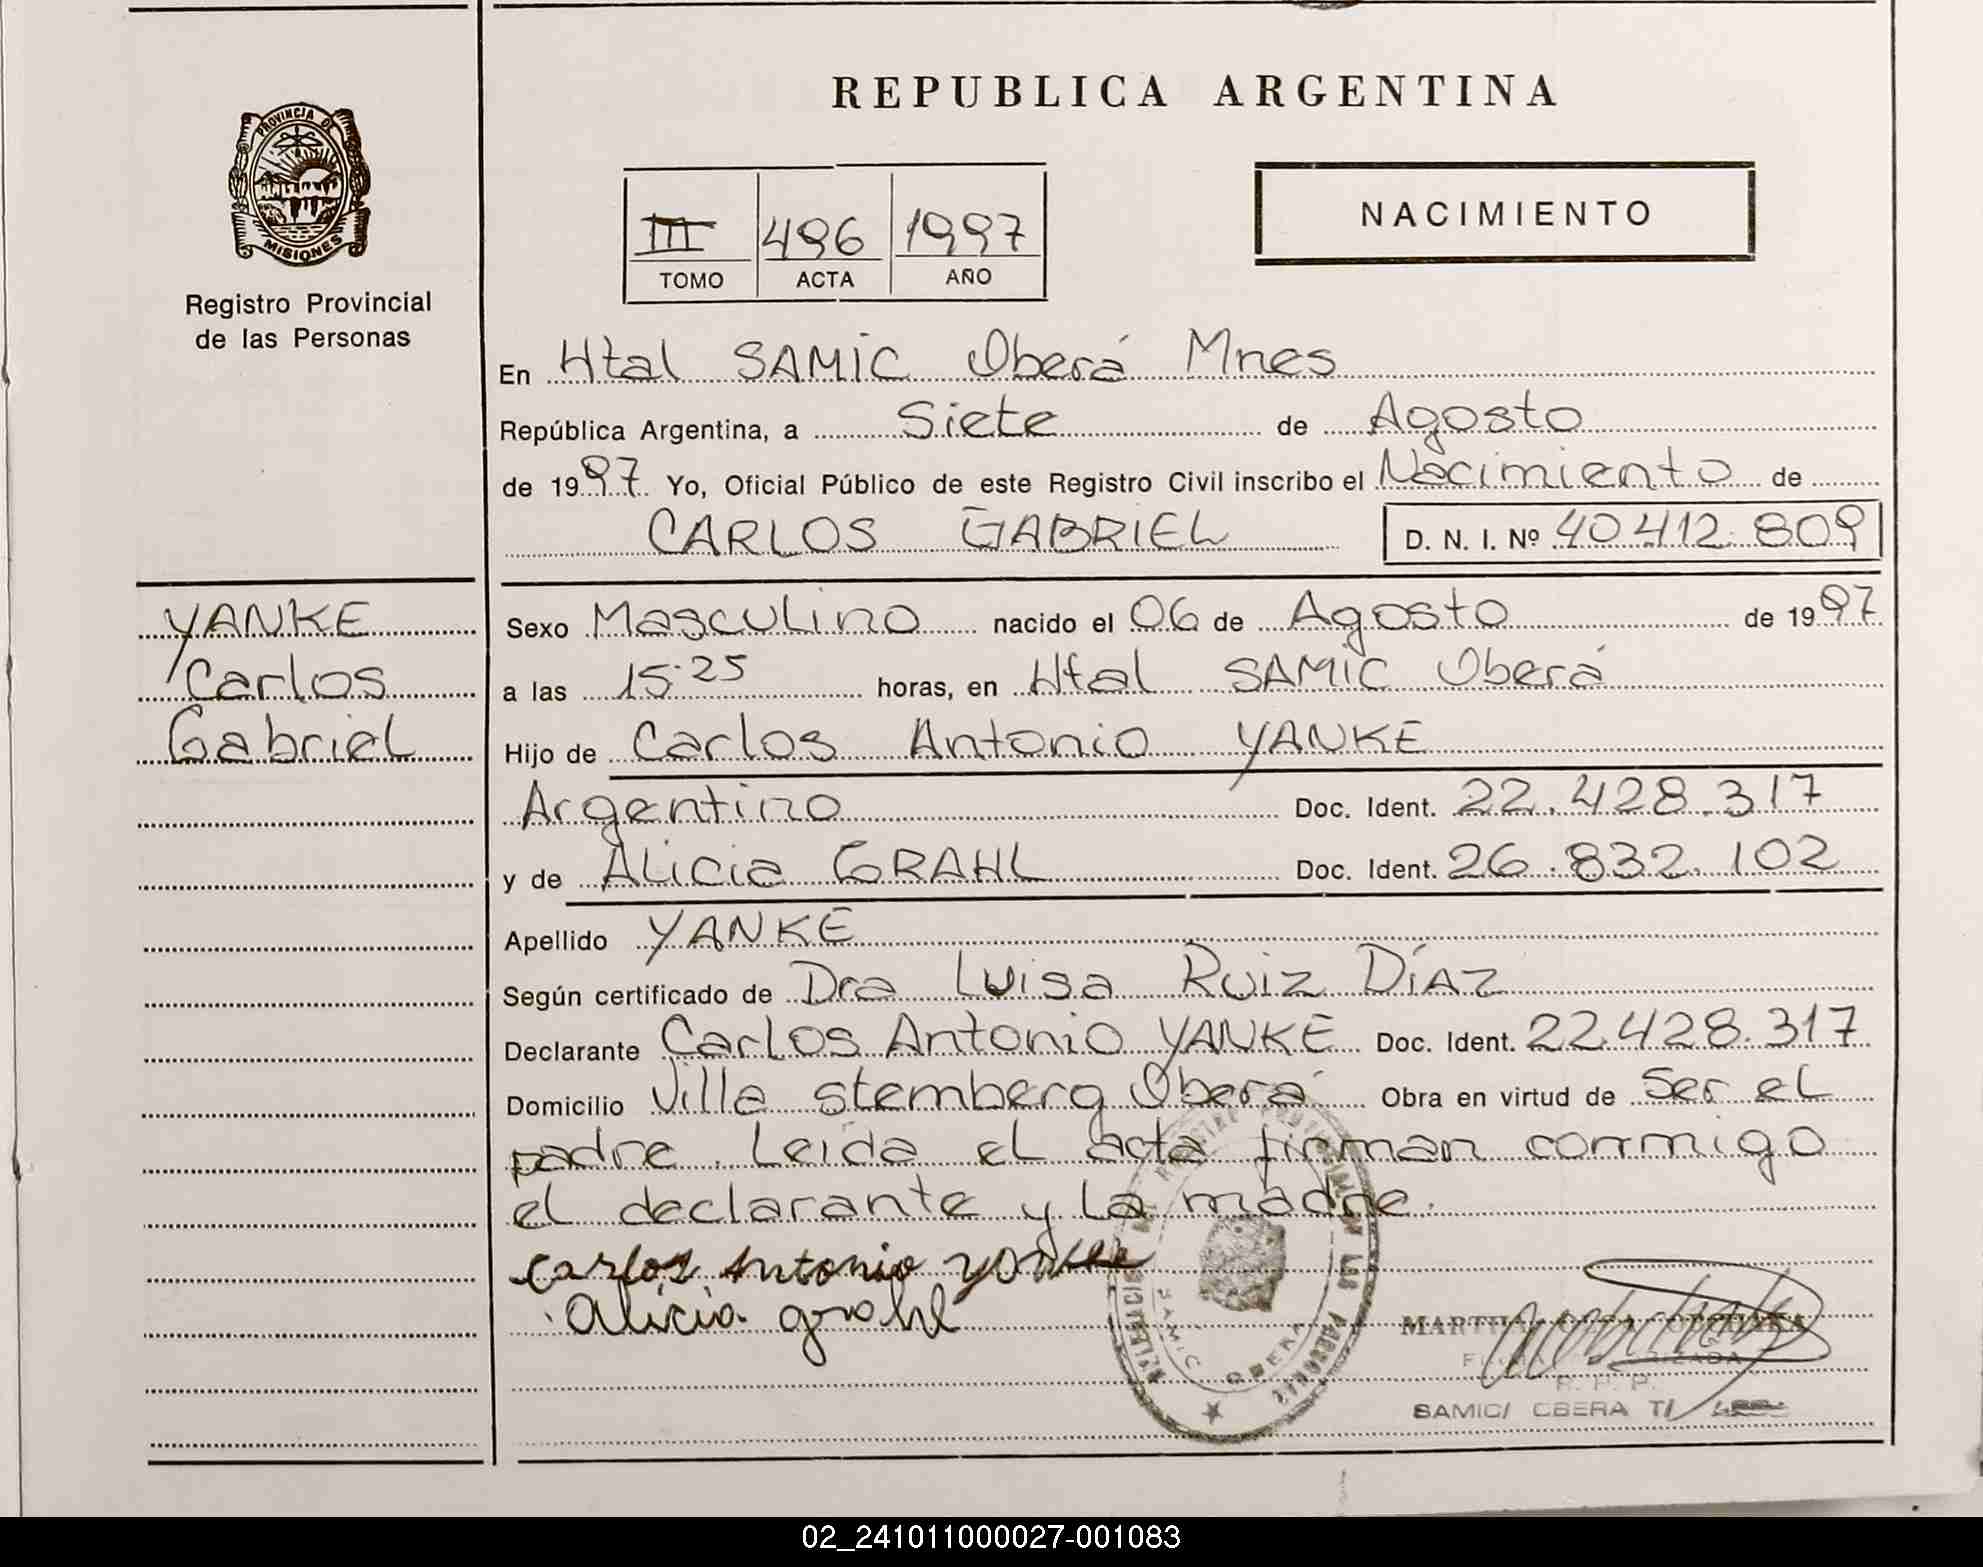 REPUBLICA ARGENTINA
PROVINCIA DE
MISIONES
Registro Provincial
de las Personas
III 496 1997
TOMO ACTA AÑO
NACIMIENTO
En Htal SAMIC Oberá Mnes
República Argentina, a Siete de Agosto
de 1997 Yo, Oficial Público de este Registro Civil inscribo el Nacimiento de
CARLOS GABRIEL D. N. I. Nº 40 412.809
YANKE
Carlos
Gabriel
Sexo Masculino nacido el 06 de Agosto de 1997
a las 15:25 horas, en Htal SAMIC Oberá
Hijo de Carlos Antonio YANKE
Argentino Doc. Ident. 22.428.317
y de Alicia GRAHL Doc. Ident. 26.832.102
Apellido YANKE
Según certificado de Dra Luisa Ruiz Díaz
Declarante Carlos Antonio YANKE Doc. Ident. 22.428.317
Domicilio Villa Stemberg Oberá Obra en virtud de Ser el
padre. Leida el acta firman conmigo
el declarante y la madre.
Carlos Antonio Yanke
Alicia grahl
LAS PERSONAS
SAMIC
OBERA
MARTHA
R. P. P.
SAMIC/ OBERA
02_241011000027-001083